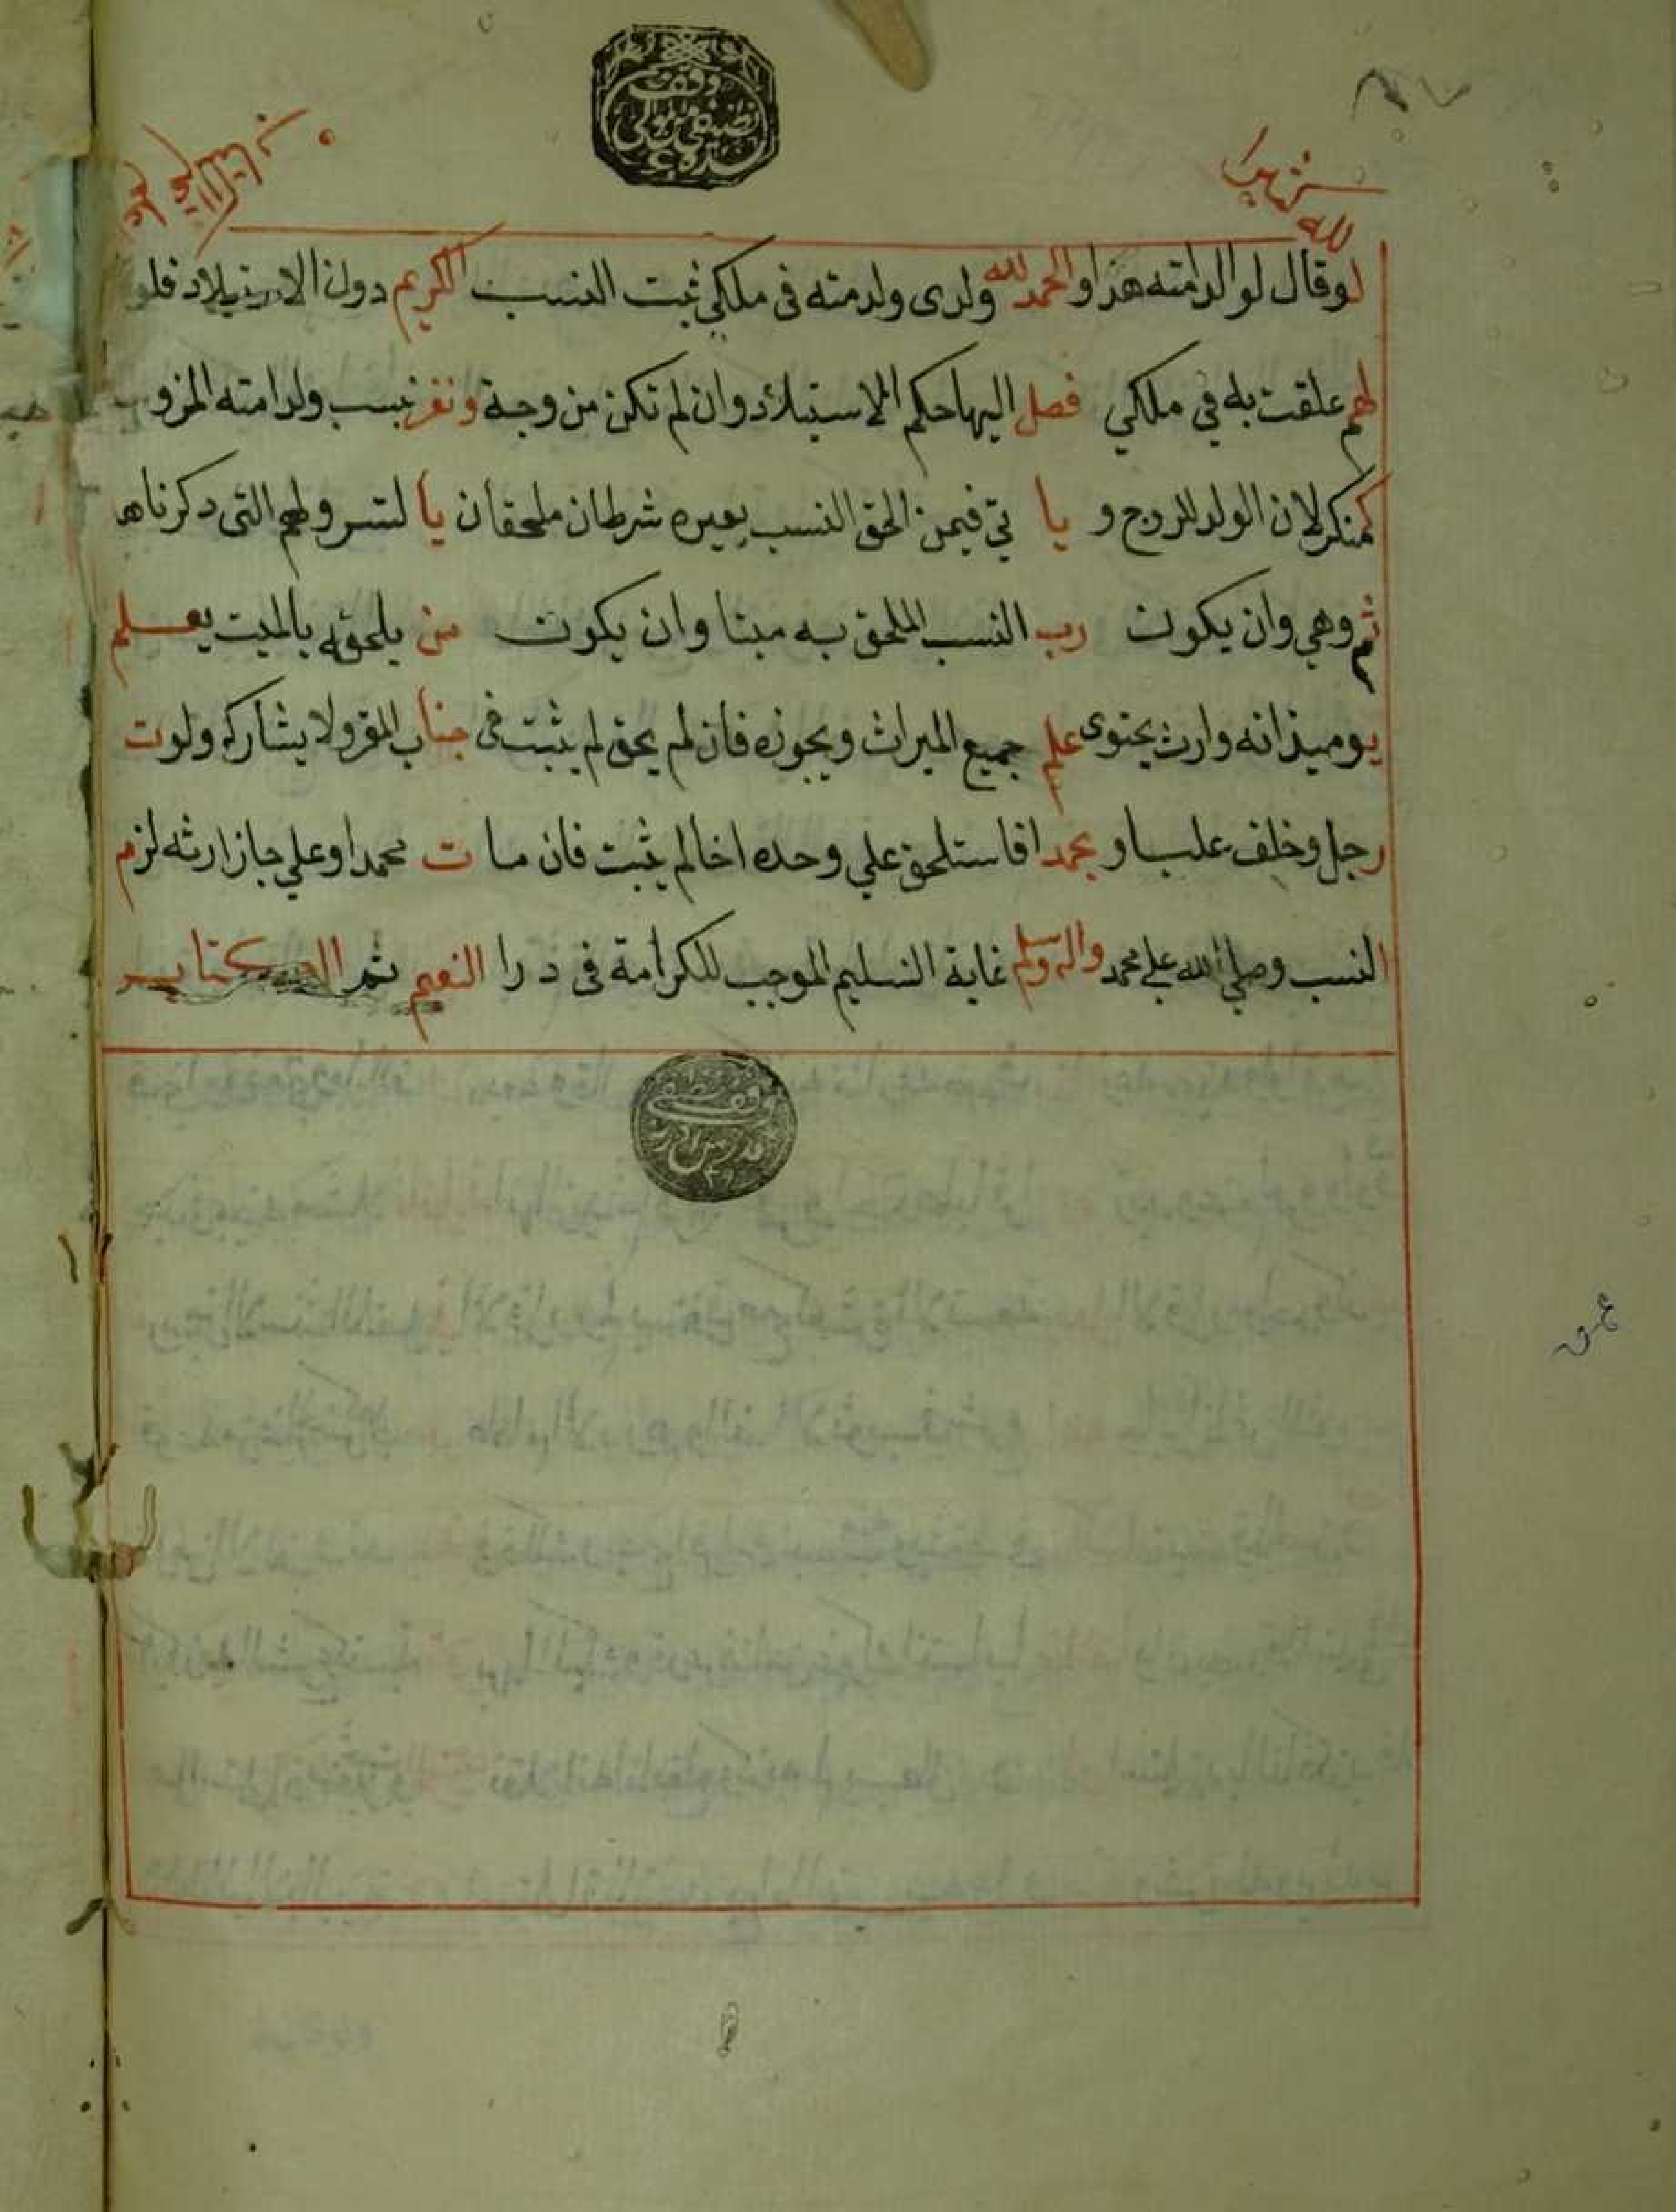 لله
لو قال لو الد امته هذا و الحمد لله ولدى ولدمته فى ملكي ثبت النسب الكريم دون الاستيلاد فلو
لهم علقت به في ملكي فصل اليها حكم الاستيلاد وان لم تكن من وجة ونفز نسب ولد امته المزو
كمنكر لان الولد للزوج و يا تي فيمن الحق النسب بغيره شرطان ملحقان يا لشرو لهم التى دكرناها
ثم وهي وان يكون رب النسب الملحق به ميتا وان يكون من يلحقه بالميت يعلم
يوميذ انه وارث يحتوى علم جميع الميراث ويجوزه فان لم يحق لم يثبت فى جناب المقر ولا يشاركه ولوت
رجل وخلف عليا و محمدا فاستلحق علي وحده اخا لم يثبت فان مات محمد او علي جاز ارثه لزم
النسب وصلي الله علي محمد واله وسلم غاية التسليم الموجب للكرامة فى د را النعيم تم الكتاب